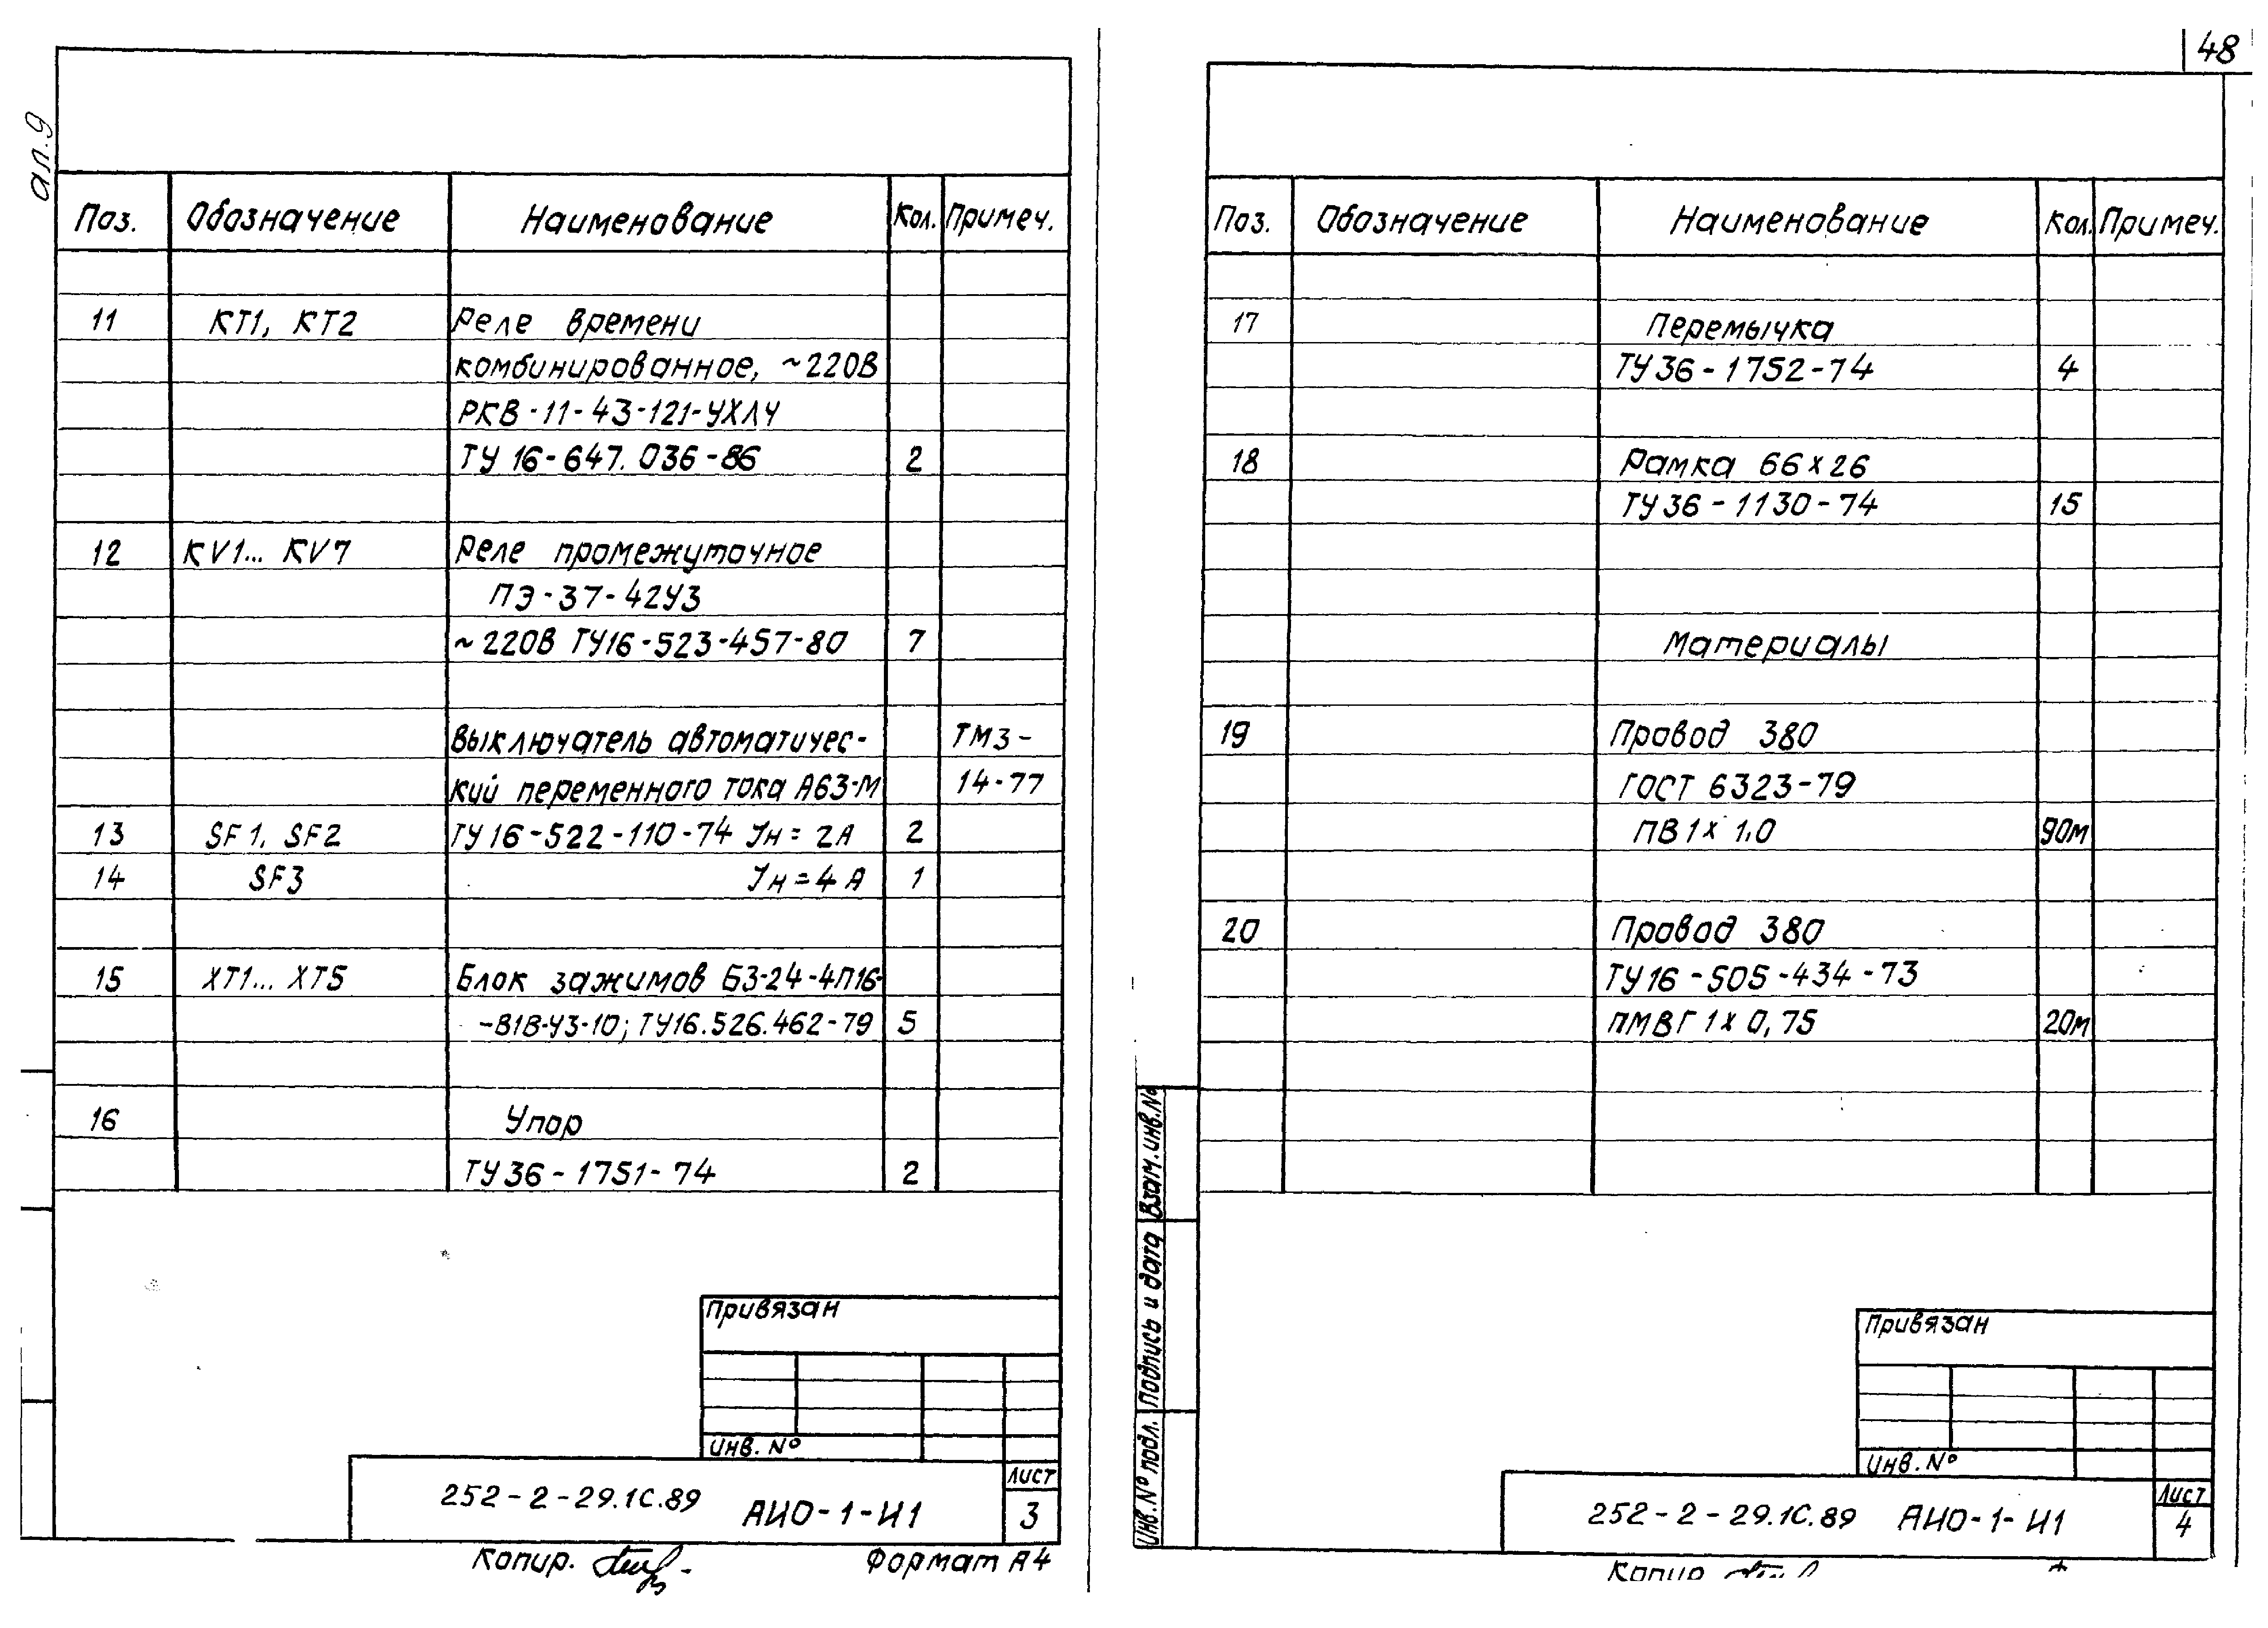 48
ал.9
Поз. Обозначение Наименование Кол. Примеч.
11 КТ1, КТ2 Реле времени
комбинированное, ~220В
РКВ-11-43-121-УХЛЧ
ТУ 16-647.036-86 2
12 KV1... KV7 Реле промежуточное
ПЭ-37-42У3
~220В ТУ16-523-457-80 7
Выключатель автоматичес- ТМЗ-
кий переменного тока А63-М 14-77
13 SF1, SF2 ТУ16-522-110-74 Jн=2А 2
14 SF3 Jн=4А 1
15 ХТ1... ХТ5 Блок зажимов БЗ-24-4П16-
-В1В-У3-10; ТУ16.526.462-79 5
16 Упор
ТУ36-1751-74 2
Привязан
Инв. №
252-2-29.1С.89 АИО-1-И1
Лист
3
Копир.
Формат А4
Поз. Обозначение Наименование Кол. Примеч.
17 Перемычка
ТУ36-1752-74 4
18 Рамка 66х26
ТУ36-1130-74 15
Материалы
19 Провод 380
ГОСТ 6323-79
ПВ1х1,0 90м
20 Провод 380
ТУ16-505-434-73
ПМВГ 1х0,75 20м
Взам.инв.№
Подпись и дата
Инв.№ подл.
Привязан
Инв.№
252-2-29.1С.89 АИО-1-И1
Лист
4
Копир